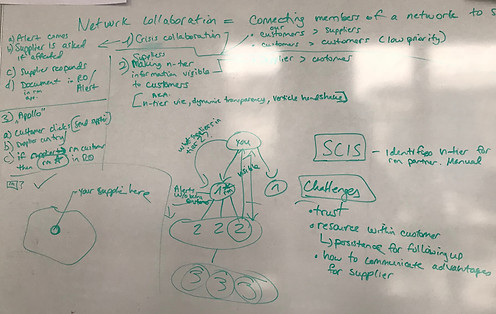 Network collaboration = Connecting members of a network to s
our
• customers > suppliers
• customers > customers (low priority)
lier > customer
1) Crisis collaboration
a) Alert comes
b) Supplier is asked
if affected
c) Supplier responds
d) Document in RO/
Alert
Suppliers
2) Making n-tier
information visible
to customers
A.K.A.
n-tier view, dynamic transparency, vertical handshake
3) "Apollo"
a) customer clicks
b) 
c) if customer
then rm in RO
your supplier here
you
what suppliers in
tier 2?
visible
1
1
Alerts
2 2 2
3 3 3
SCIS - identifies n-tier for
rm partner. Manual
Challenges
• trust
• resource within customer
↳ persistence for following up
• how to communicate advantages
for supplier